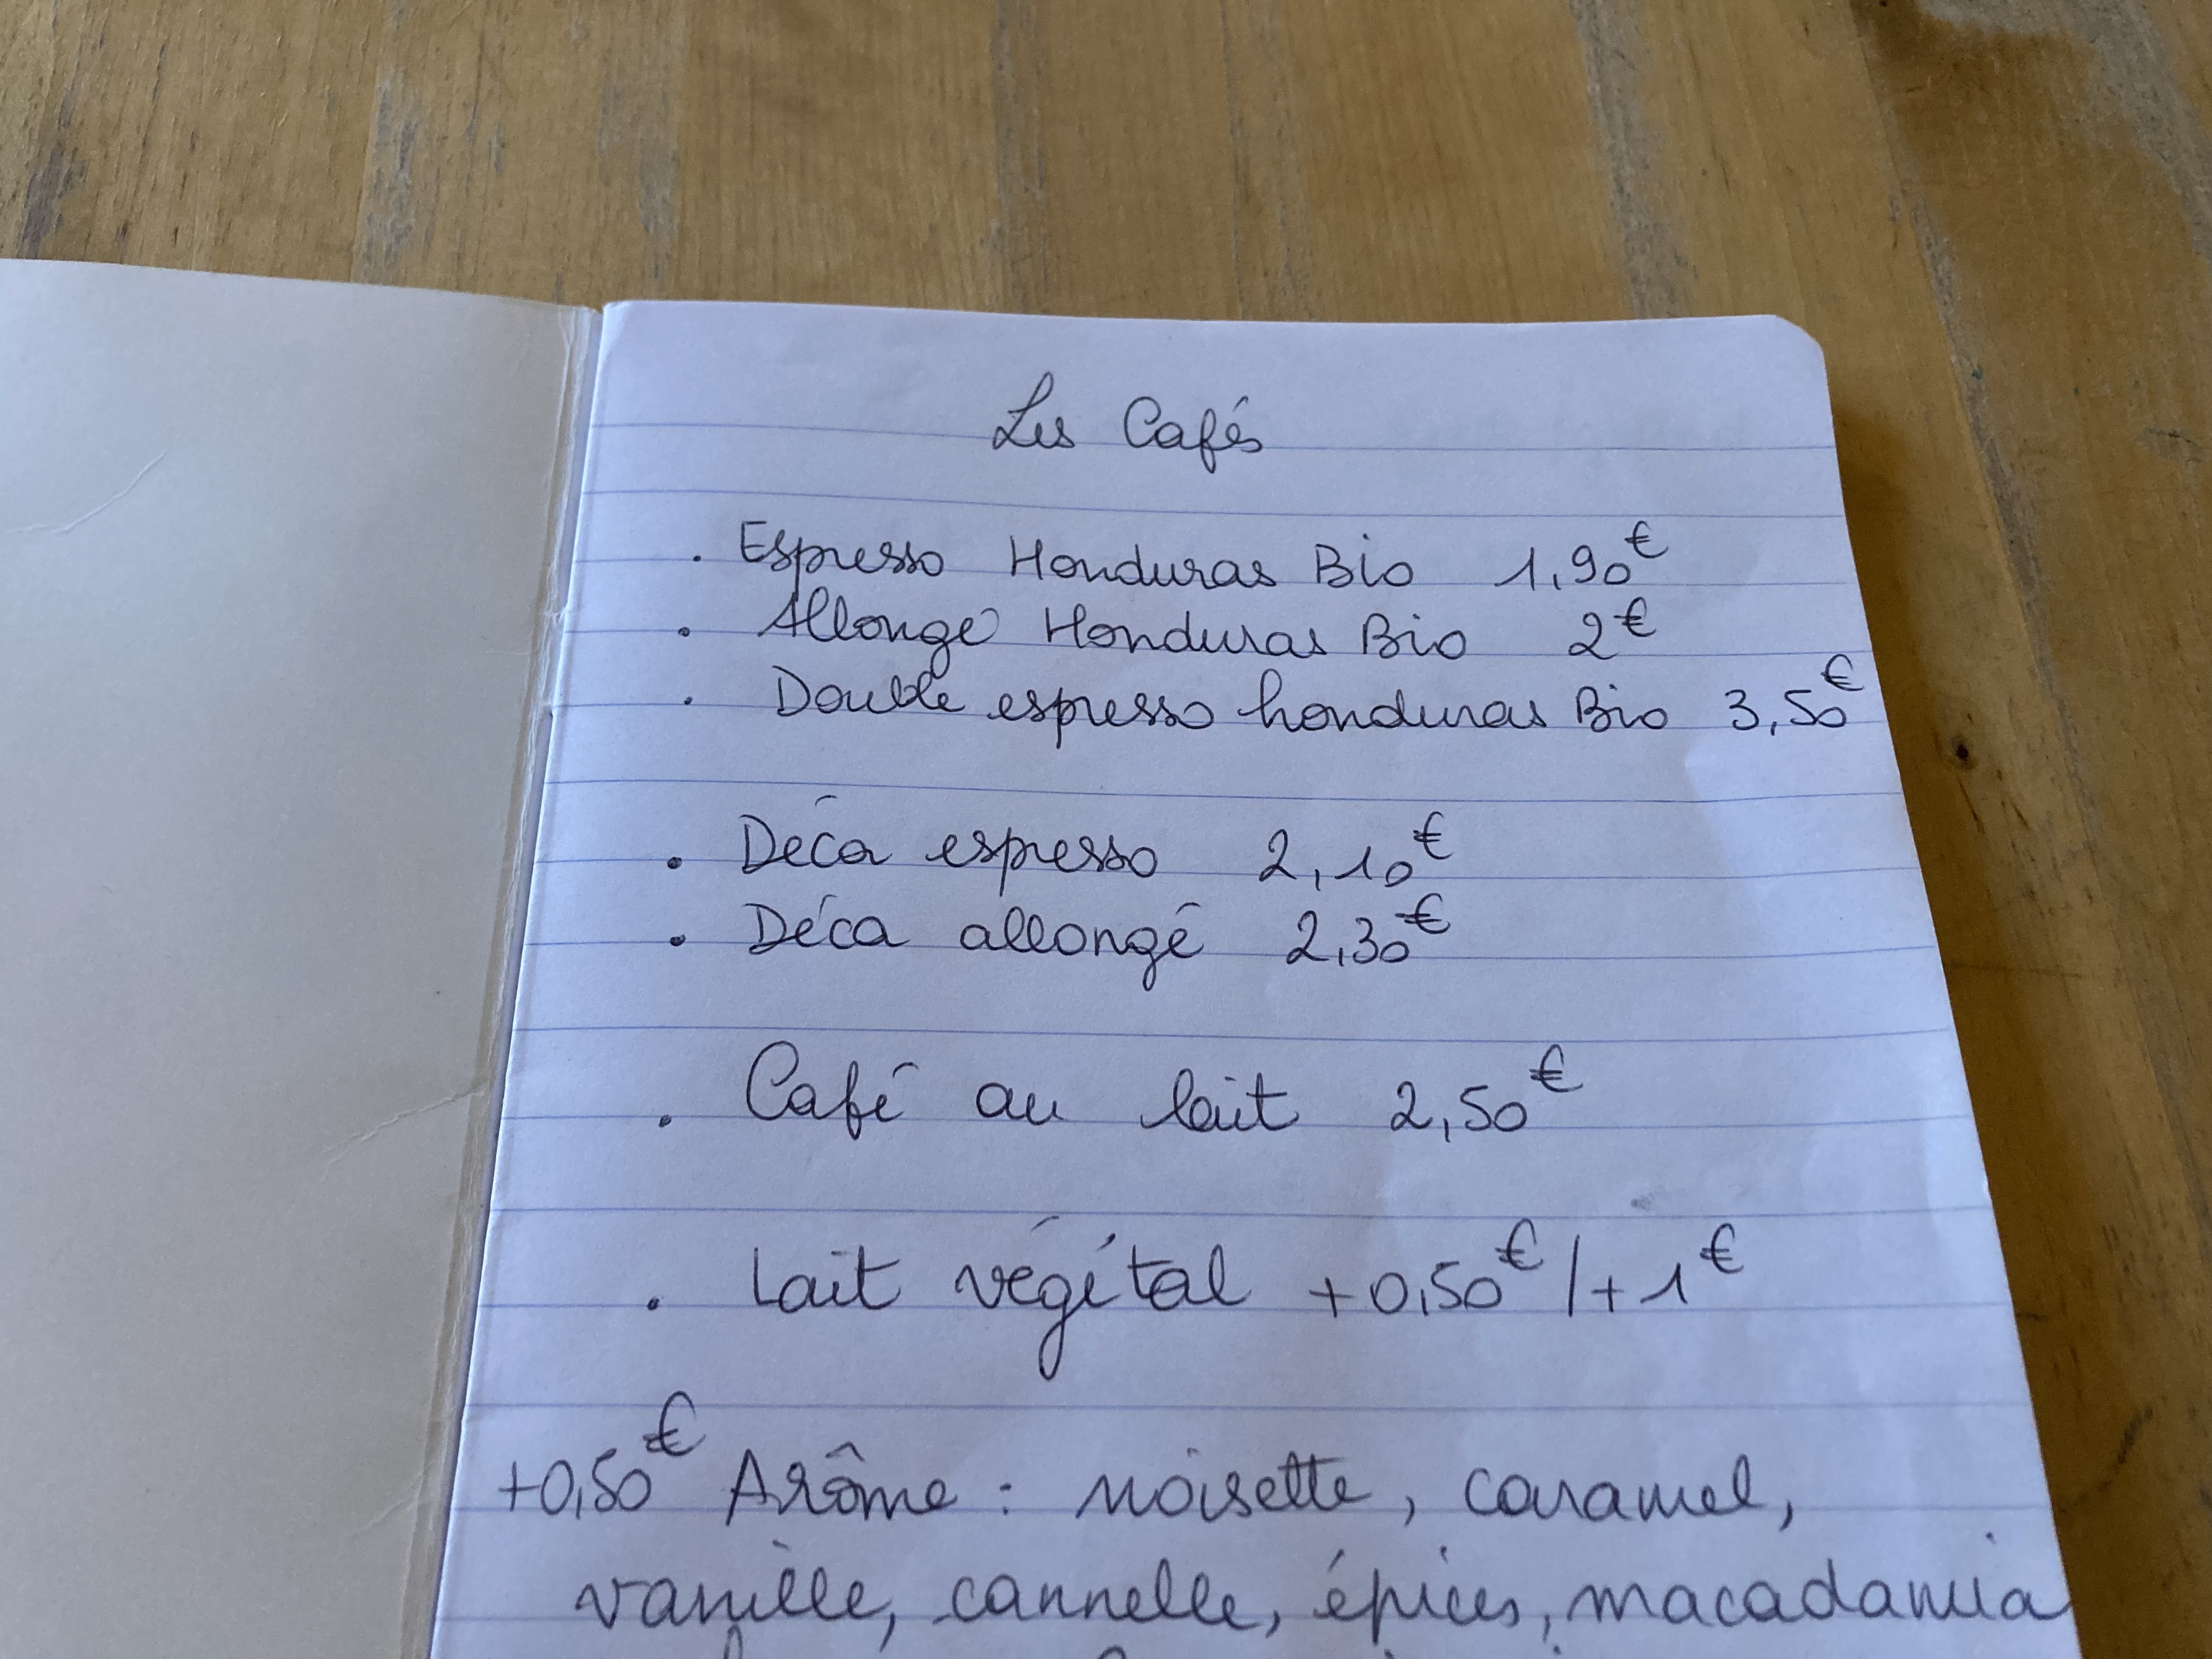 Les Cafés
. Espresso Honduras Bio 1,90€
. Allongé Honduras Bio 2€
. Double espresso honduras Bio 3,50€
. Déca espresso 2,10€
. Déca allongé 2,30€
. Café au lait 2,50€
. Lait végétal +0,50€/+1€
+0,50€ Arôme : noisette, caramel,
vanille, cannelle, épices, macadamia